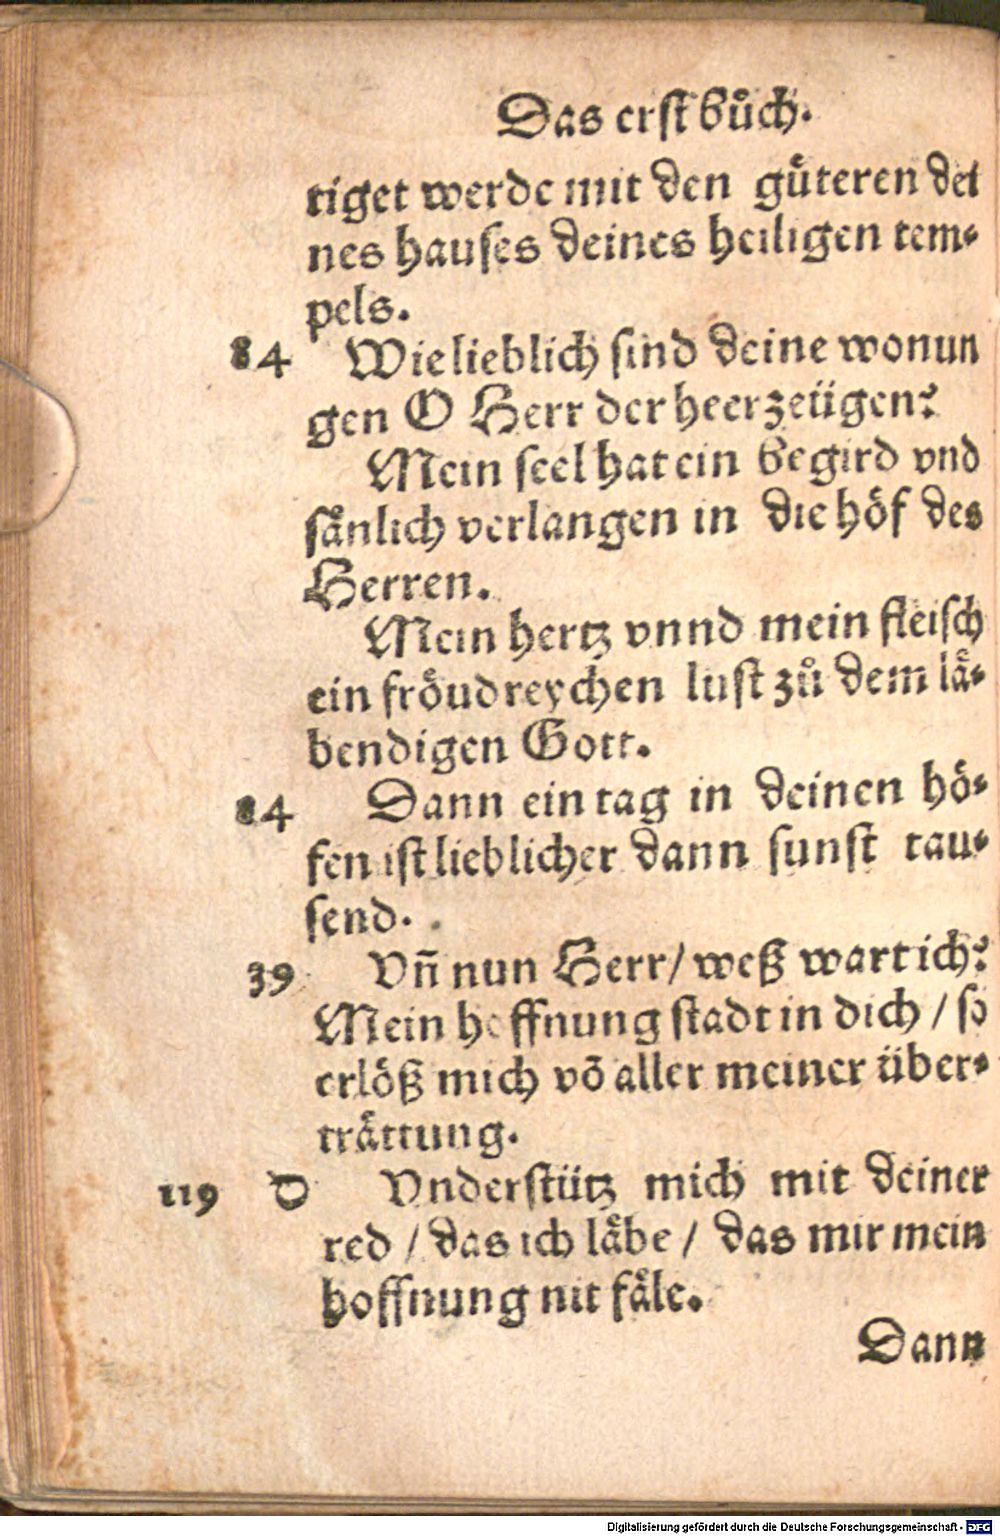 Das erst bůch.
tiget werde mit den guͤteren dei
nes hauses deines heiligen tem⸗
pels.
84 Wie lieblich sind deine wonun
gen O Herr der heerzeügen?
Mein seel hat ein begird vnd
saͤnlich verlangen in die hoͤf des
Herren.
Mein hertz vnnd mein fleisch
ein froͤudreychen lust zů dem laͤ⸗
bendigen Gott.
84 Dann ein tag in deinen hoͤ⸗
fen ist lieblicher dann sunst tau⸗
send.
39 Vñ nun Herr/ weß wart ich?
Mein hoffnung stadt in dich / so
erloͤß mich võ aller meiner über⸗
traͤttung.
119 D Vnderstütz mich mit deiner
red / das ich laͤbe / das mir mein
hoffnung nit faͤle.
Dann
Digitalisierung gefördert durch die Deutsche Forschungsgemeinschaft - DFG